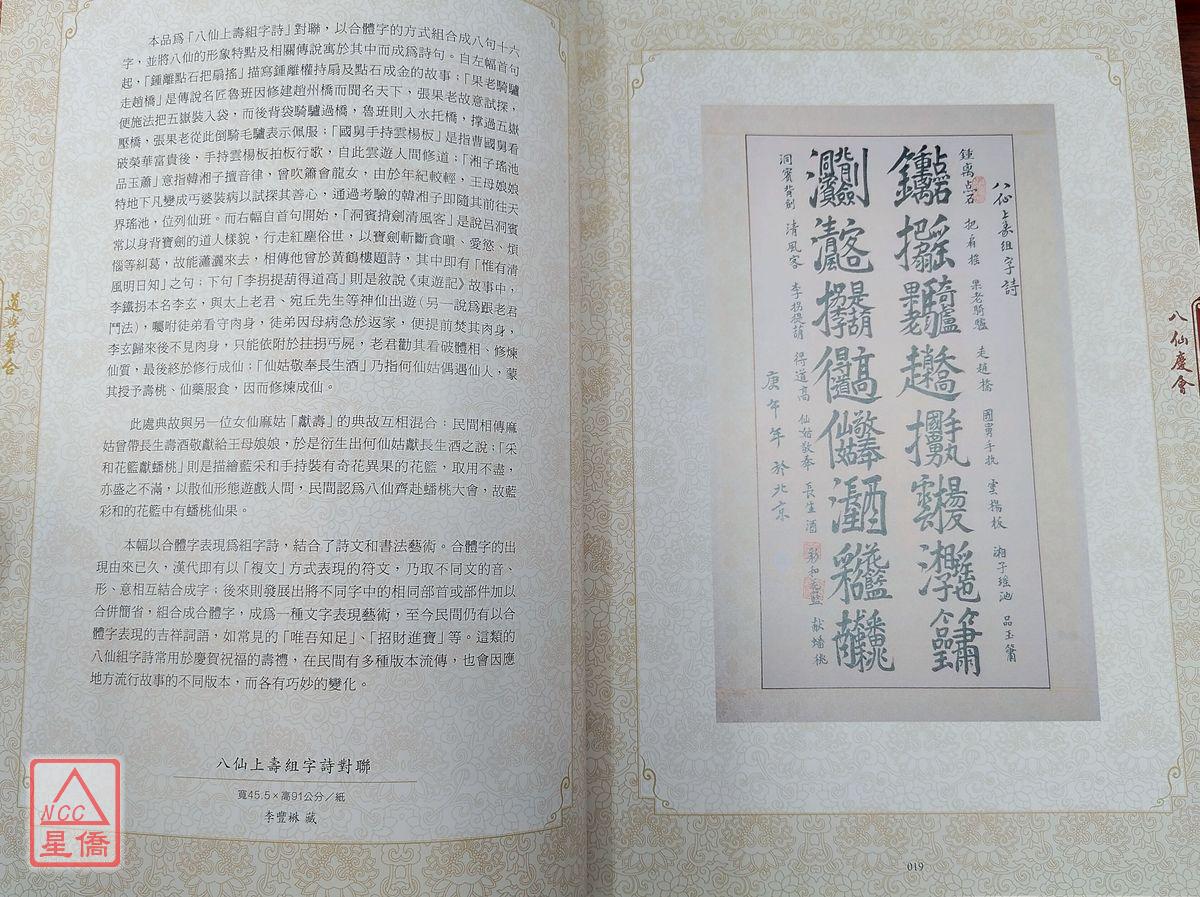 本品為「八仙上壽組字詩」對聯，以合體字的方式組合成八句十六
字，並將八仙的形象特點及相關傳說寓於其中而成為詩句。自左幅首句
起，「鍾離點石把扇搖」描寫鍾離權持扇及點石成金的故事；「果老騎驢
走趙橋」是傳說名匠魯班因修建趙州橋而聞名天下，張果老故意試探，
便施法把五嶽裝入袋，而後背袋騎驢過橋，魯班則入水托橋，撐過五嶽
壓橋，張果老從此倒騎毛驢表示佩服；「國舅手持雲楊板」是指曹國舅看
破榮華富貴後，手持雲楊板拍板行歌，自此雲遊人間修道；「湘子瑤池
品玉蕭」意指韓湘子擅音律，曾吹簫會龍女，由於年紀較輕，王母娘娘
特地下凡變成丐婆裝病以試探其善心，通過考驗的韓湘子即隨其前往天
界瑤池，位列仙班。而右幅自首句開始，「洞賓揹劍清風客」是說呂洞賓
常以身背寶劍的道人樣貌，行走紅塵俗世，以寶劍斬斷貪嗔、愛慾、煩
惱等糾葛，故能瀟灑來去，相傳他曾於黃鶴樓題詩，其中即有「惟有清
風明日知」之句；下句「李拐提葫得道高」則是敘說《東遊記》故事中，
李鐵拐本名李玄，與太上老君、宛丘先生等神仙出遊（另一說為跟老君
鬥法），囑咐徒弟看守肉身，徒弟因母病急於返家，便提前焚其肉身，
李玄歸來後不見肉身，只能依附於拄拐丐屍，老君勸其看破體相、修煉
仙質，最後終於修行成仙；「仙姑敬奉長生酒」乃指何仙姑偶遇仙人，蒙
其授予壽桃、仙藥服食，因而修煉成仙。
此處典故與另一位女仙麻姑「獻壽」的典故互相混合：民間相傳麻
姑曾帶長生壽酒敬獻給王母娘娘，於是衍生出何仙姑獻長生酒之說；「采
和花籃獻蟠桃」則是描繪藍采和手持裝有奇花異果的花籃，取用不盡，
亦盛之不滿，以散仙形態遊戲人間，民間認為八仙齊赴蟠桃大會，故藍
彩和的花籃中有蟠桃仙果。
本幅以合體字表現為組字詩，結合了詩文和書法藝術。合體字的出
現由來已久，漢代即有以「複文」方式表現的符文，乃取不同文的音、
形、意相互結合成字；後來則發展出將不同字中的相同部首或部件加以
合併簡省，組合成合體字，成為一種文字表現藝術，至今民間仍有以合
體字表現的吉祥詞語，如常見的「唯吾知足」、「招財進寶」等。這類的
八仙組字詩常用於慶賀祝福的壽禮，在民間有多種版本流傳，也會因應
地方流行故事的不同版本，而各有巧妙的變化。
八仙上壽組字詩對聯
寬45.5×高91公分／紙
李豐楙 藏
NCC
星僑
道與藝合
八仙慶會
八仙上壽組字詩
鍾离点石 把扇搖 果老騎驢 走趙橋 國舅手执 雲揚板 湘子瑶池 品玉簫
洞賓背劍 清風客 李拐提葫 得道高 仙姑敬奉 長生酒 彩和花籃 献蟠桃
庚午年於北京
019